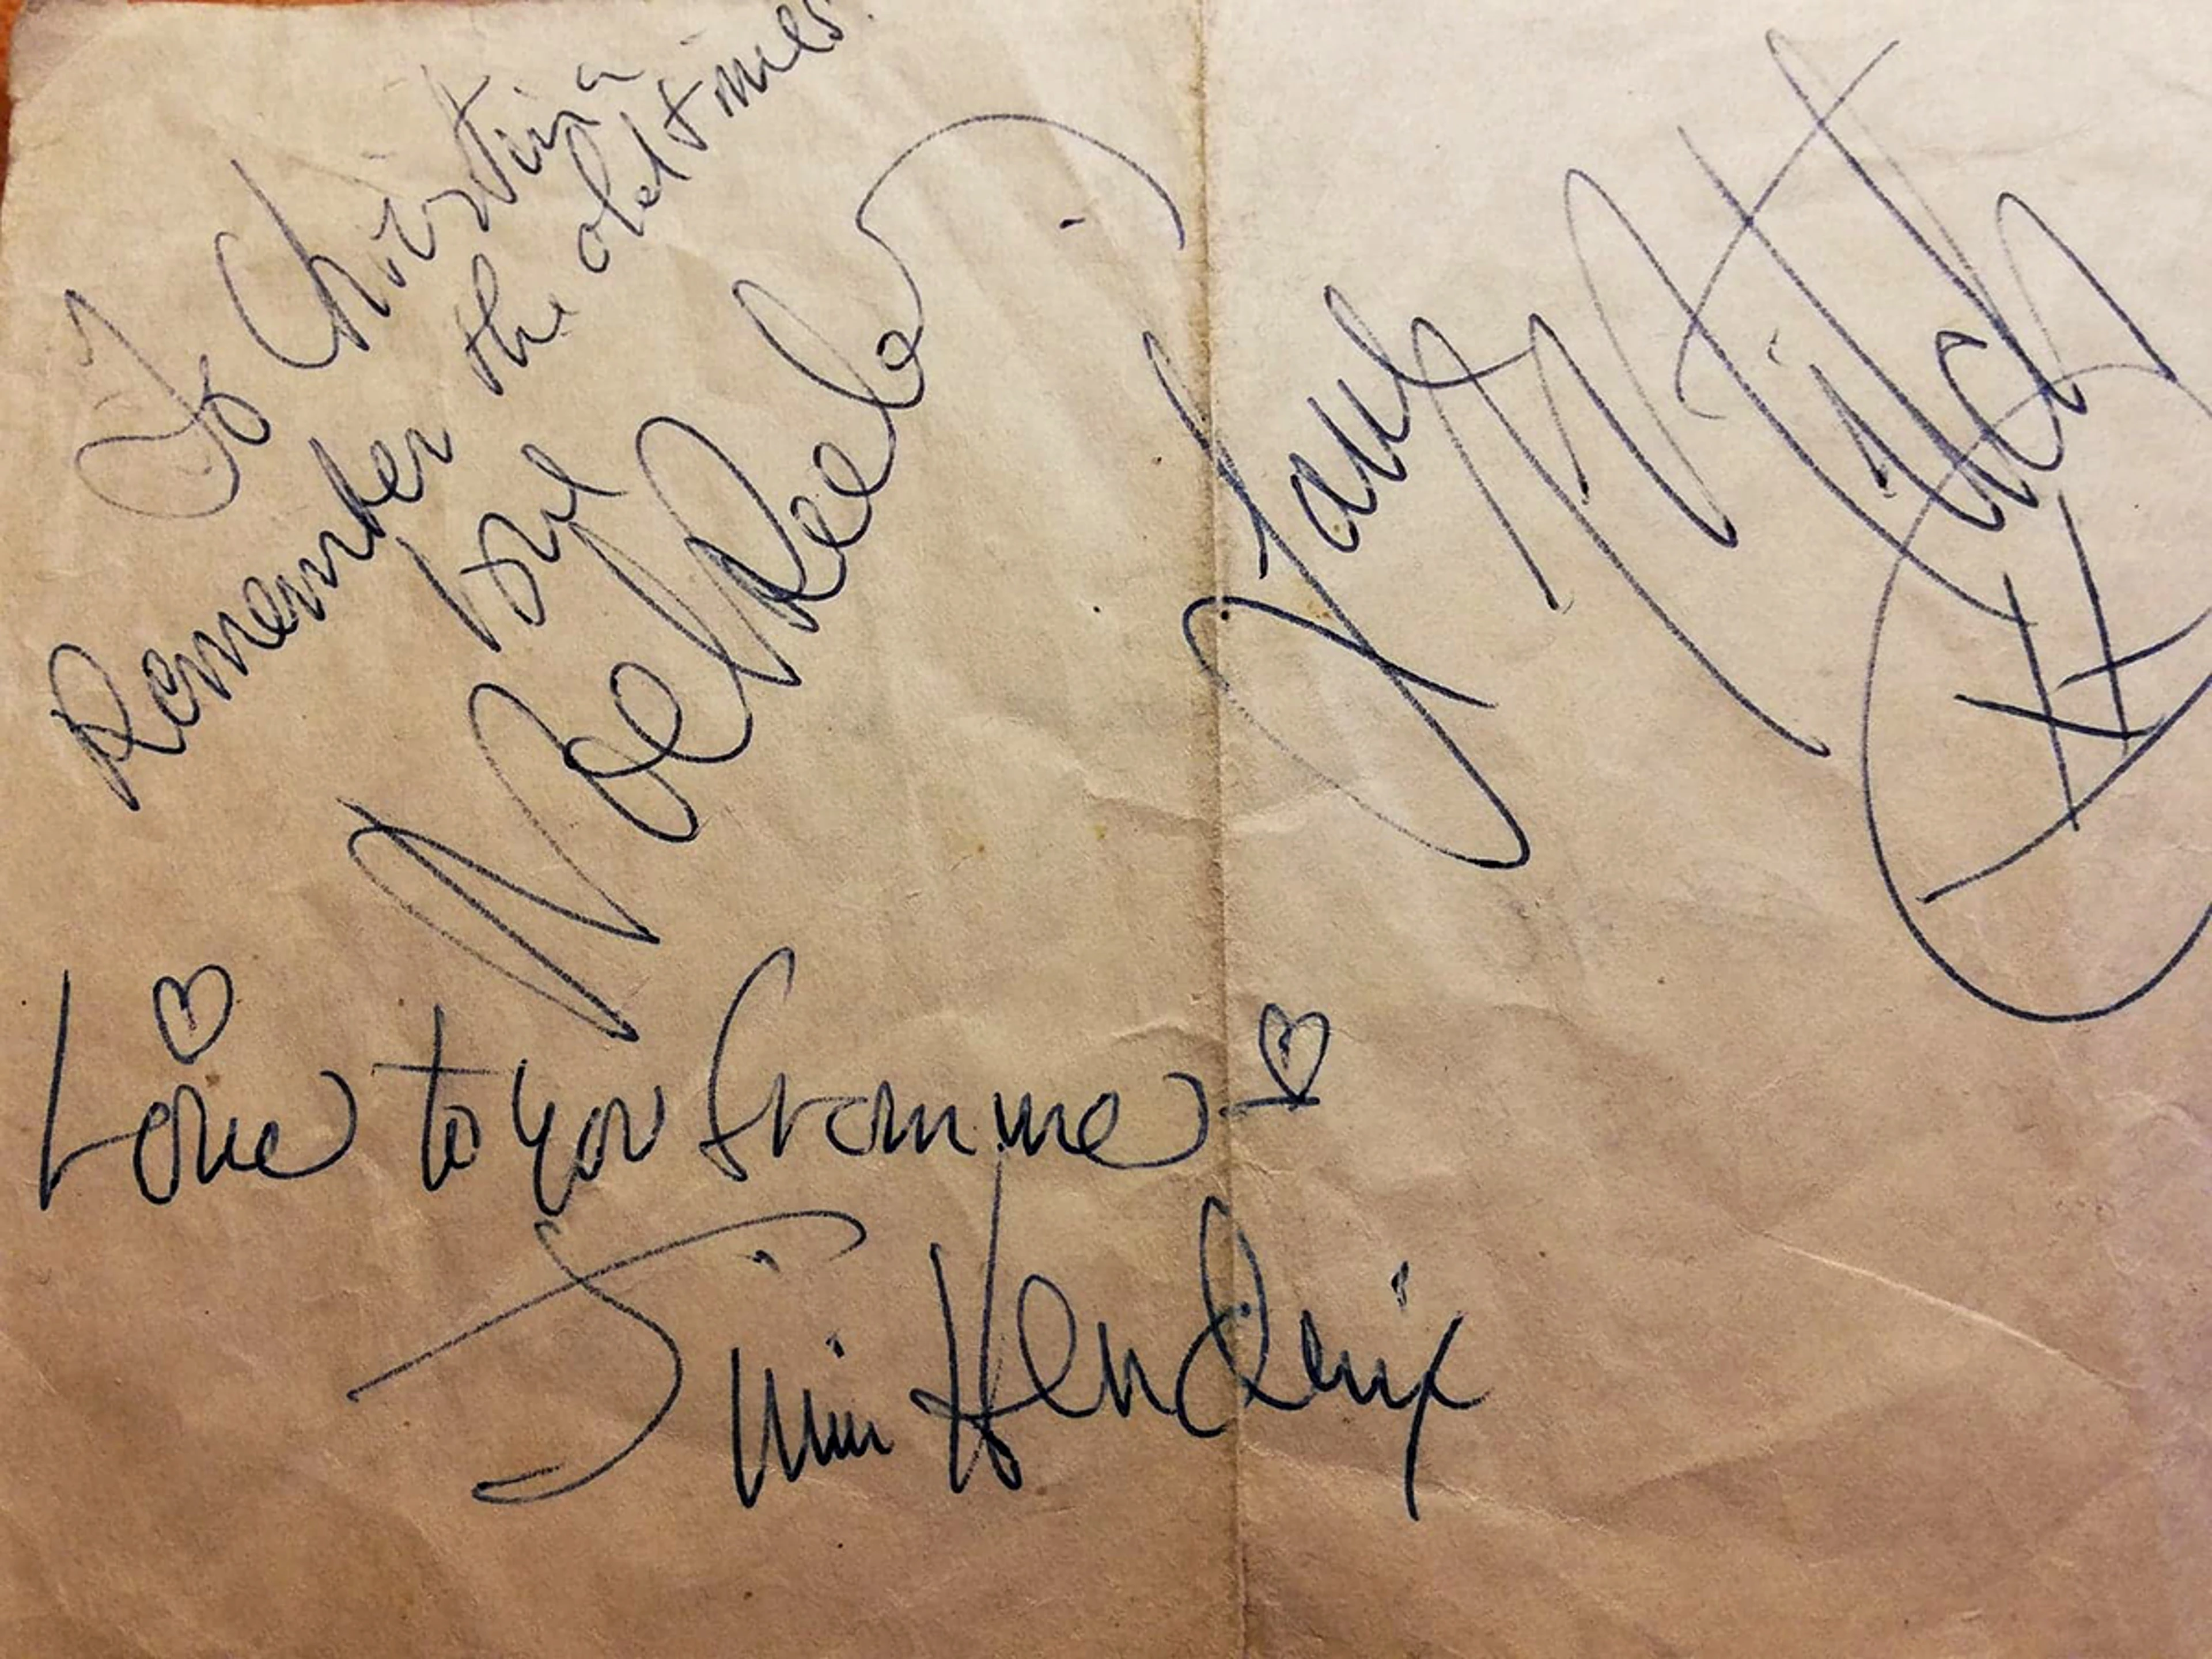 To Christina
Remember the old times.
love
Noel Redding
Love Mitch
XX
Love to you from me
Jimi Hendrix